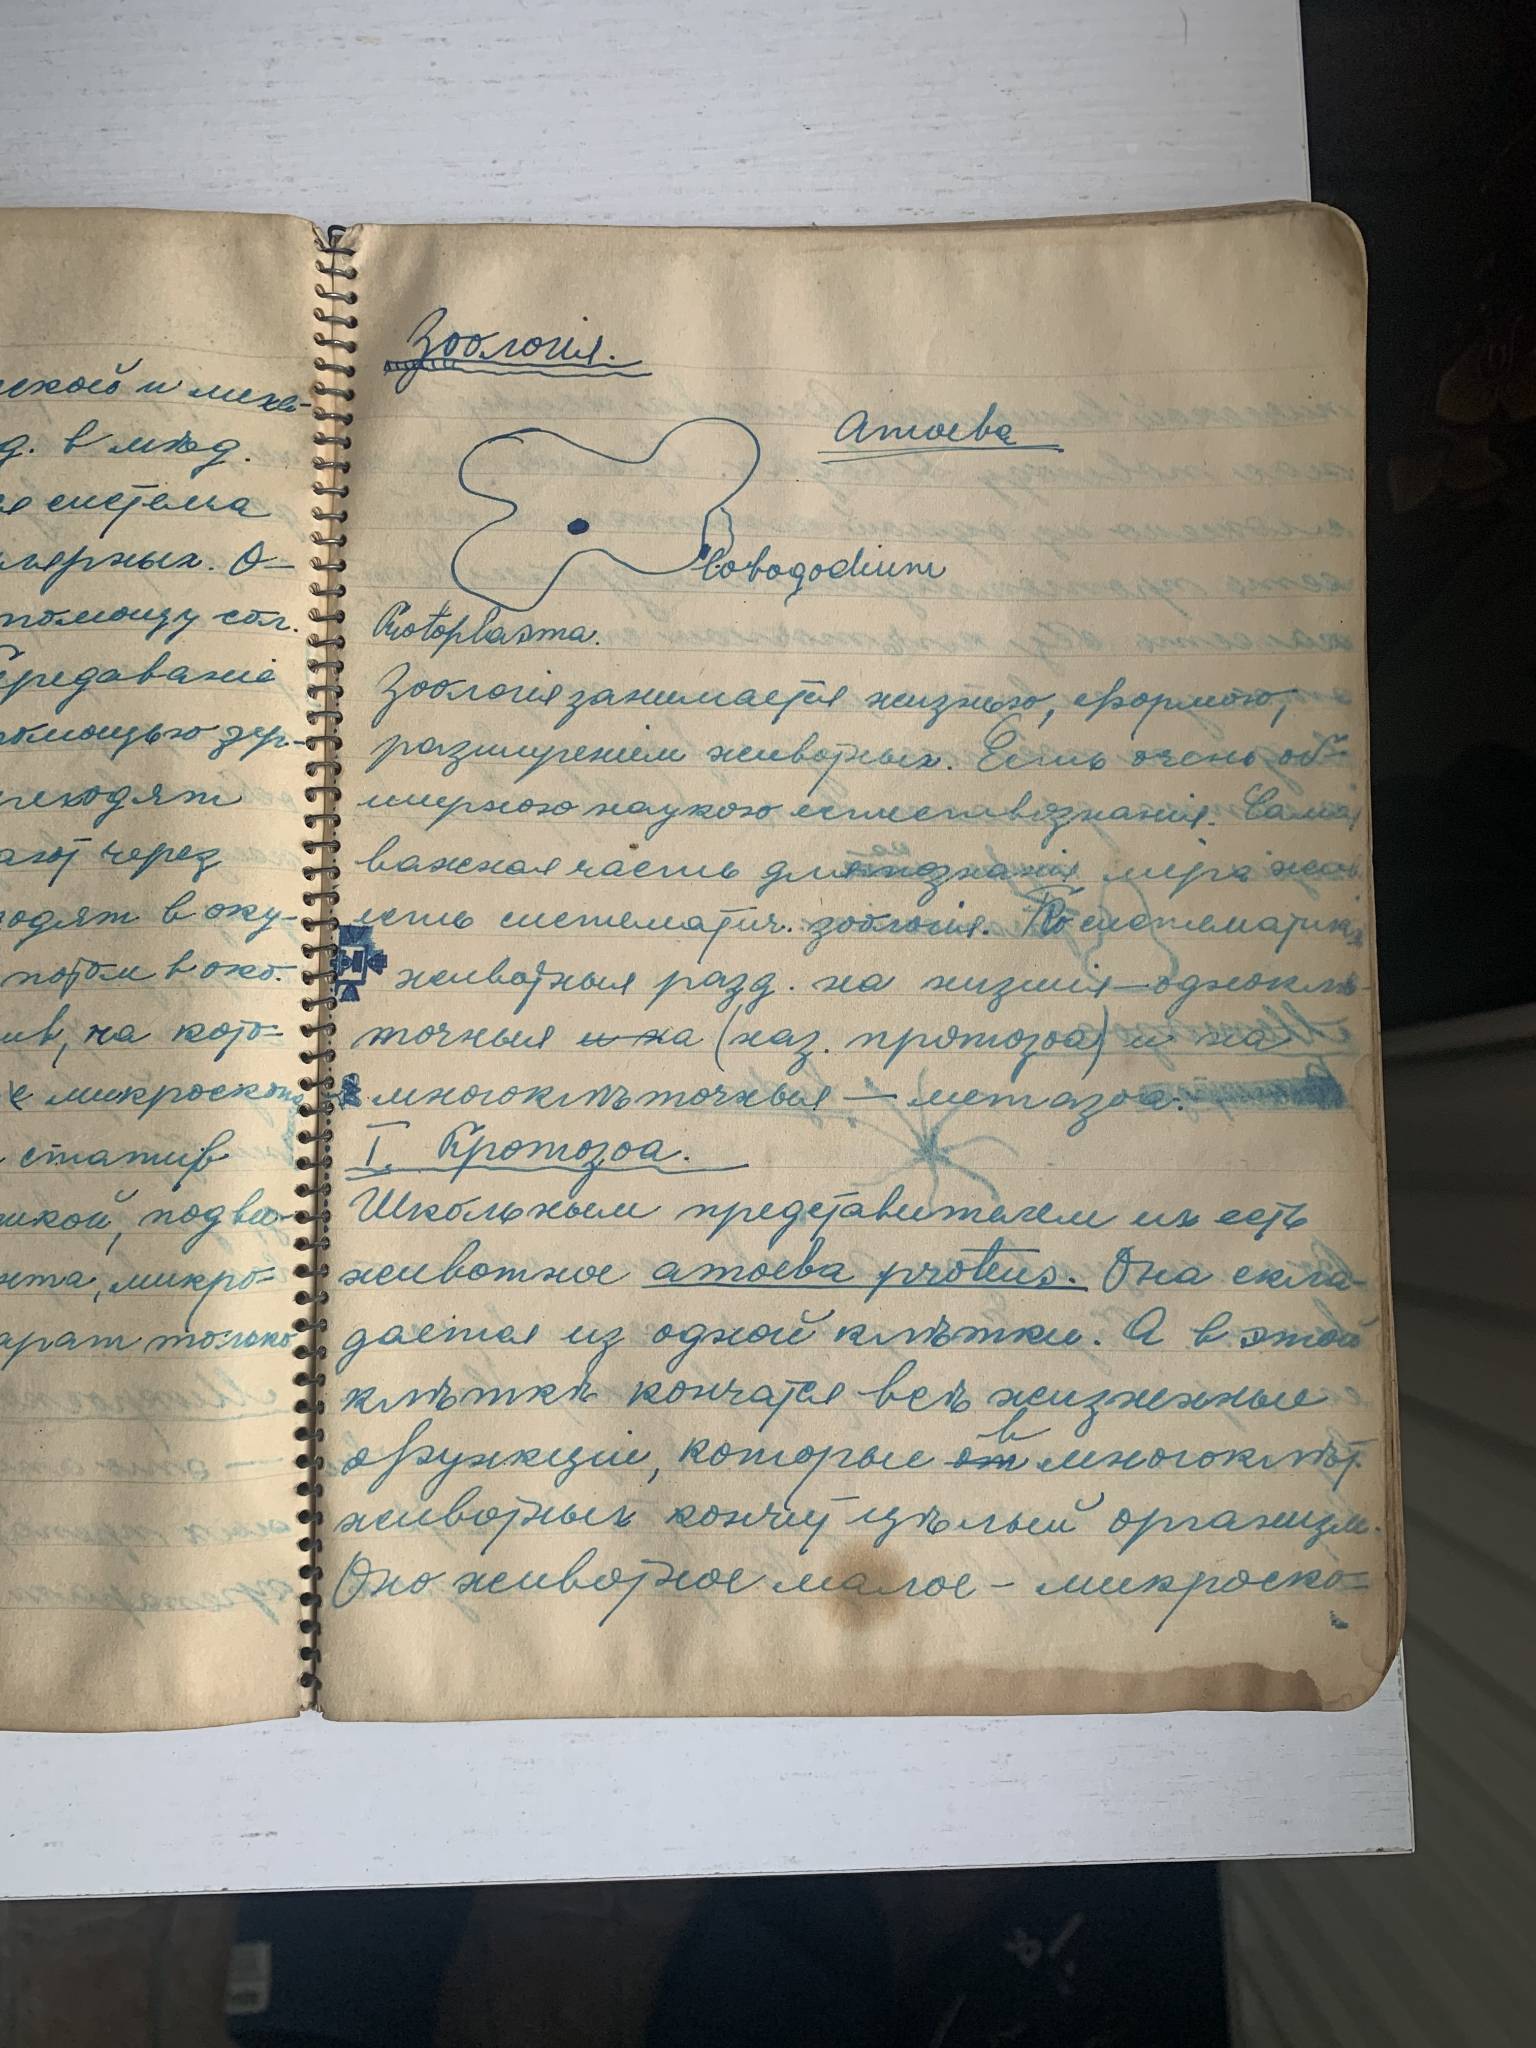 ской и меха-
д. в мѣд.
система
мерных. О-
помощу сол.
Передаваніе
помощью зер-
реходят
ают через
ходят в оку-
потом в око.
ив, на кото-
микроскопа
статив
ткой, подви-
нта, микро-
арат только
Зоологія.
Атоева
Lobogodium
Protoplasma.
Зоологія занимается жизнью, формою,
разширеніем животных. Есть очень об-
ширною наукою естествознанія. Самая
важная часть для познанія міра жив.
есть систематич. зоологія. По систематикѣ
животныя разд. на низшія—одноклѣ-
точныя и на (наз. протозоа) и на
многоклѣточныя — метазоа.
I. Протозоа.
Школьным представителем их есть
животное amoeba proteus. Она скла-
дается из одной клѣтки. А в этой
клѣткѣ кончатся всѣ жизненные
функціи, которые от в многоклѣт.
животных кончит цѣлый организм.
Оно животное малое – микроско-